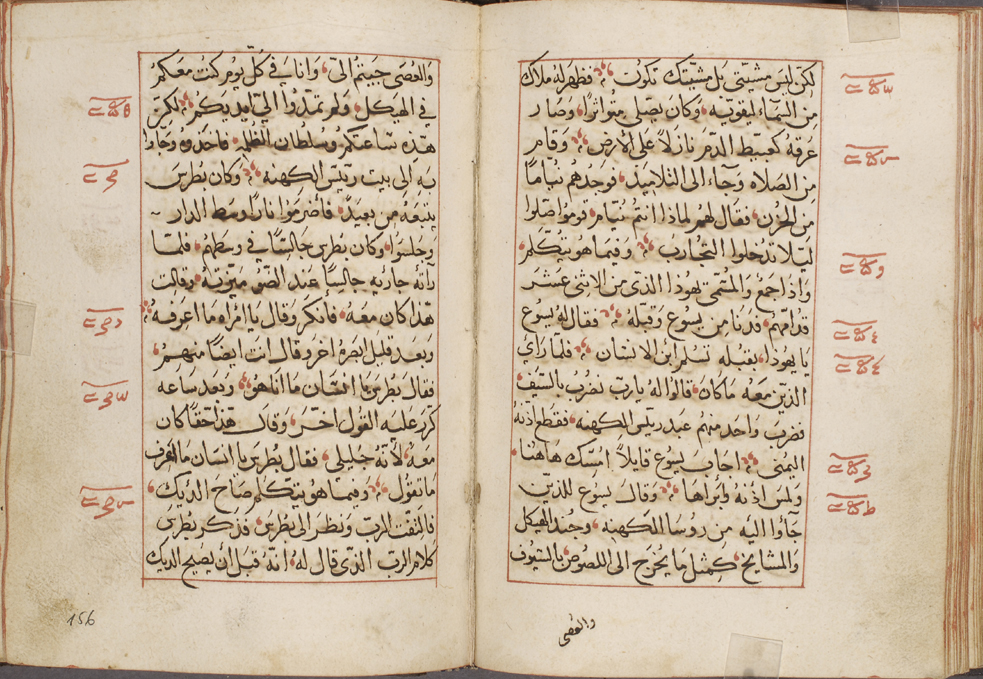 لكن ليس مشيتي بل مشيتك تكون فظهر له ملاك
من السماء ليقويه وكان يصلي متواترا وصار
عرقه كعبيط الدم نازلا على الارض وقام
من الصلاه وجاء الى التلاميذ فوجدهم نياما
من الحزن فقال لهم لماذا انتم نيام قوموا صلوا
ليلا تدخلوا التجارب وفيما هو يتكلم
واذا جمع والمسمى يهودا الذي من الاثنى عشر
قدامهم فدنا من يسوع وقبله فقال له يسوع
يا يهودا بقبله تسلم ابن الانسان فلما راى
الذين معه ما كان قالوا له يارب نضرب بالسيف
فضرب واحد منهم عبد رييس الكهنه فقطع اذنه
اليمنى اجاب يسوع قايلا امسك هاهنا
ولمس اذنه وابراها وقال يسوع للذين
جاوا اليه من روسا الكهنه وجند الهيكل
والمشايخ كمثل ما يخرج الى اللصوص بالسيوف
والعصي
والعصى جيتم الي وانا في كل يوم كنت معكم
في الهيكل ولم تمدوا الي ايديكم لكن
هذه ساعتكم وسلطان الظلمه فاخذوه وجاوا
به الى بيت رييس الكهنه وكان بطرس
يتبعه من بعيد فاضرموا نارا وسط الدار
وجلسوا وكان بطرس جالسا في وسطهم فلما
رأته جاريه جالسا عند الضو ميزته وقالت
هذا كان معه فانكر وقال يا امراه ما اعرفه
وبعد قليل ابصره اخر وقال انت ايضا منهم
فقال بطرس يا انسان ما انا هو وبعد ساعه
كرر عليه القول اخر وقال هذا حقا كان
معه لانه جليلي فقال بطرس يا انسان ما اعرف
ما تقول وفيما هو يتكلم صاح الديك
فالتفت الرب ونظر الى بطرس فذكر بطرس
كلام الرب الذي قال له انه قبل ان يصيح الديك
156